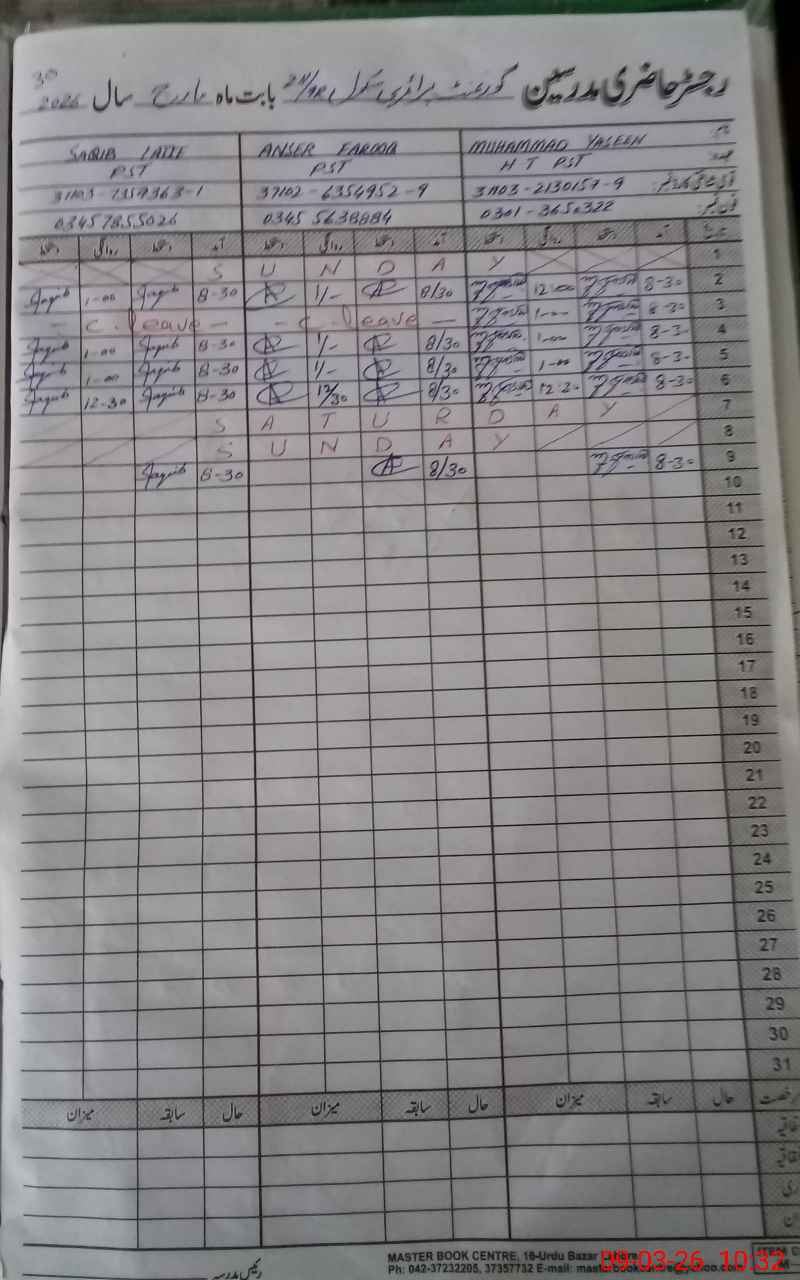 30
رجسٹر حاضری مدرسین گورنمنٹ پرائمری سکول بابت ماہ مارچ سال 2026
SAQIB LATIF ANSER FAROOQ MUHAMMAD YASEEN نام
PST PST H T PST عہدہ
31103-7359363-1 37102-6354952-9 31103-2130157-9
03457855026 0345 5638884 0301-3650322 فون نمبر
دستخط روانگی دستخط آمد دستخط روانگی دستخط آمد دستخط روانگی دستخط آمد تاریخ
S U N D A Y 1
Saqib 1-00 Saqib 8-30 1/- 8/30 12-00 8-30 2
- C. leave - - C. leave - 1-00 8-30 3
Saqib 1-00 Saqib 8-30 1/- 8/30 1-00 8-30 4
Saqib 1-00 Saqib 8-30 1/- 8/30 1-00 8-30 5
Saqib 12-30 Saqib 8-30 12/30 8/30 12-30 8-30 6
S A T U R D A Y 7
S U N D A Y 8
Saqib 8-30 8/30 8-30 9
10
11
12
13
14
15
16
17
18
19
20
21
22
23
24
25
26
27
28
29
30
31
میزان سابقہ حال میزان سابقہ حال میزان سابقہ حال رخصت
رئیس مدرسہ
MASTER BOOK CENTRE, 16-Urdu Bazar Lahore
Ph: 042-37232205, 37357732 E-mail:
09-03-26 10:32